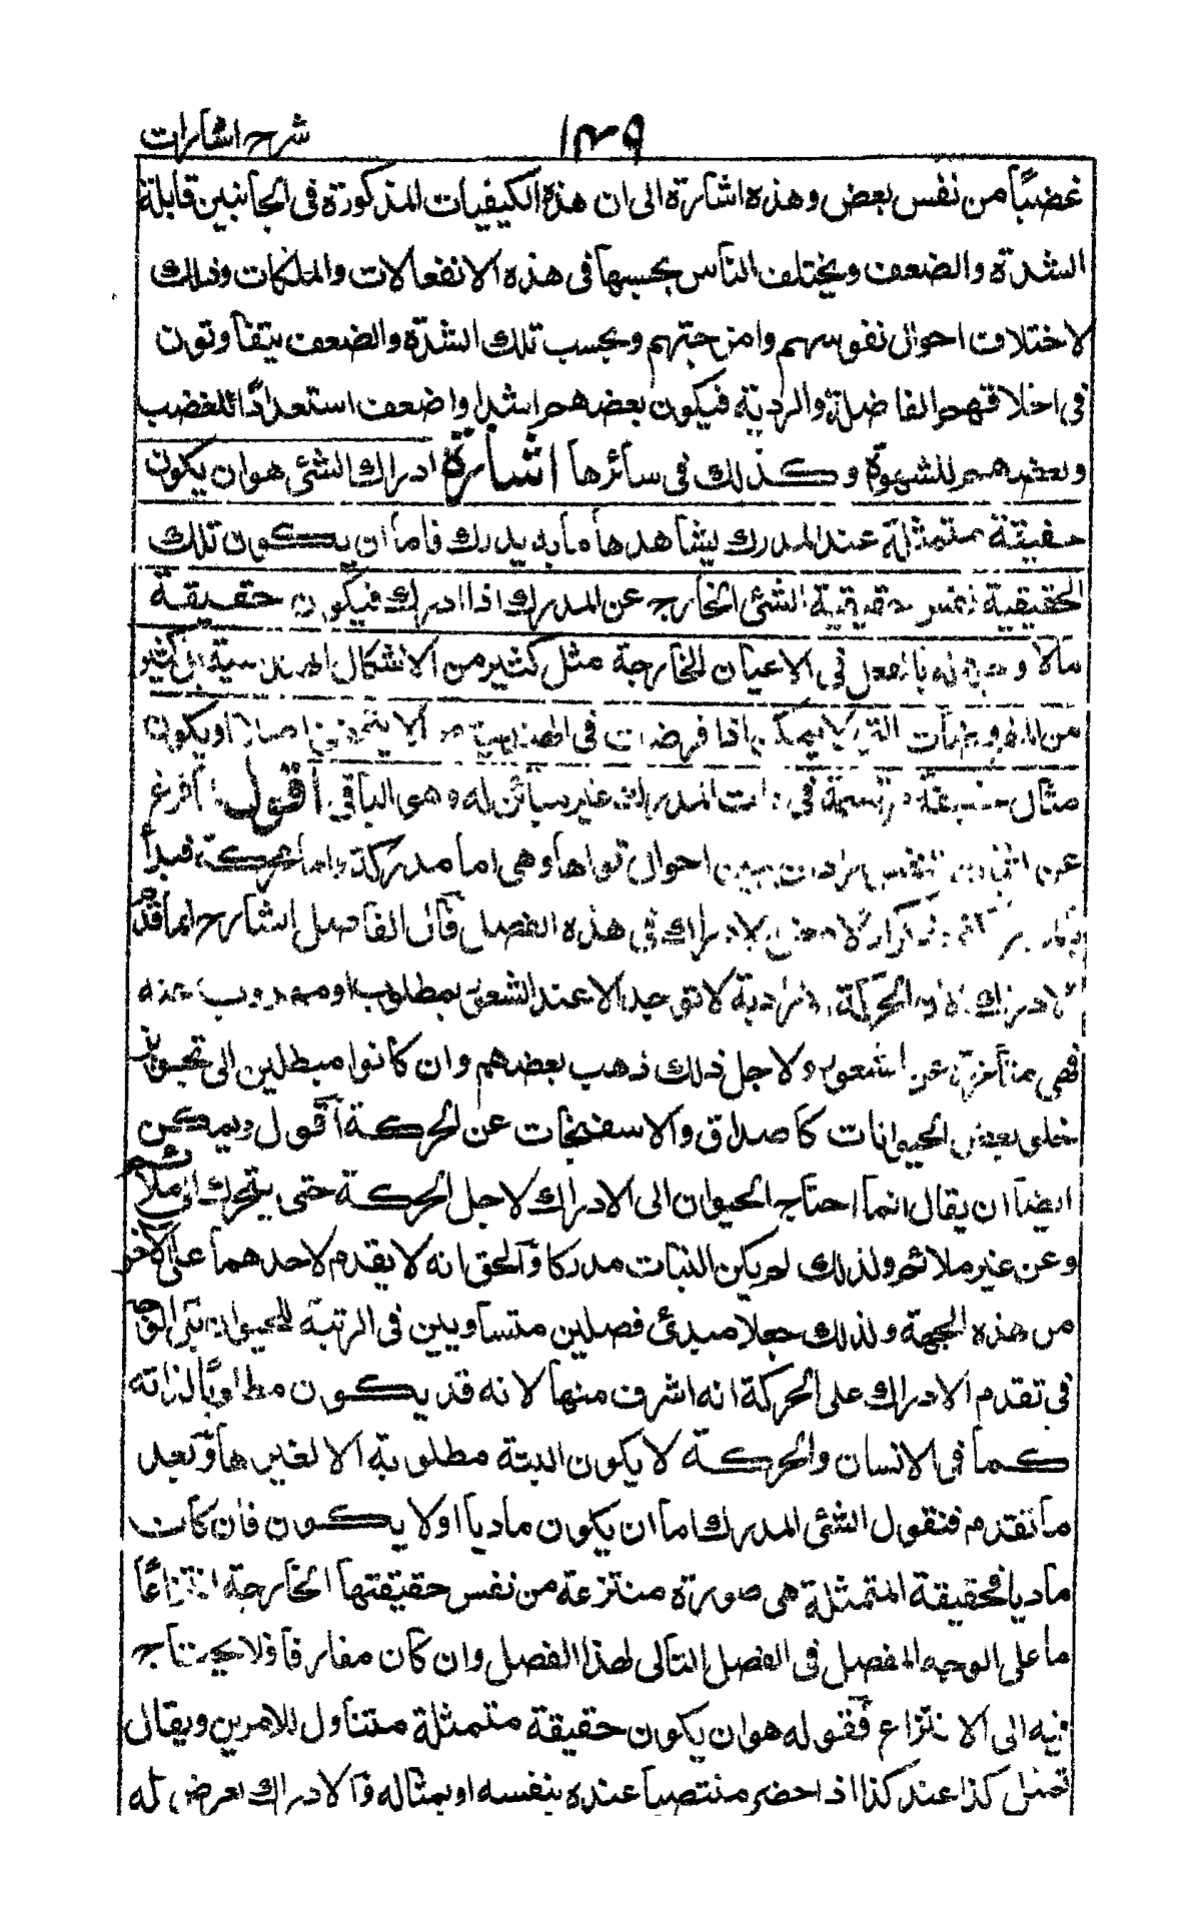 شرح اشارات ١٣٩
غضبًا من نفس بعض وهذه اشارة الى ان هذه الكيفيات المذكورة فى الجانبين قابلة
الشدة والضعف ويختلف الناس بحسبها فى هذه الانفعالات والملكات وذلك
لاختلاف احوال نفوسهم وامزجتهم وبحسب تلك الشدة والضعف يتفاوتون
فى اخلاقهم الفاضلة والردية فيكون بعضهم اشد او اضعف استعدادًا للغضب
وبعضهم للشهوة وكذلك فى سائرها اشارة ادراك الشئ هو ان يكون
حقيقته متمثلة عند المدرك يشاهدها ما به يدرك فاما ان يكون تلك
الحقيقية نفس حقيقية الشئ الخارج عن المدرك اذا ادرك فيكون حقيقة
مالا وجود له بالفعل فى الاعيان الخارجة مثل كثير من الاشكال الهندسية بل كثير
من المفروضات التى لا يمكن اذا فرضت فى الهندسة مما لا يتحقق اصلا او يكون
مثال حقيقة مرتسمة فى ذات المدرك غير مبائن له وهو الباقى اقول لما فرغ
عن اثبات النفس اراد ان يبين احوال قواها وهى اما مدركة واما محركة فبدأ
فى هذه الفصل قال الفاضل الشارح انما قدم
الادراك لان الحركة الارادية لا توجد الا عند الشعور بمطلوب او مهروب عنه
فهى متأخرة عن الشعور ولاجل ذلك ذهب بعضهم وان كانوا مبطلين الى تجويز
خلو بعض الحيوانات كالاصداف والاسفنجات عن الحركة اقول ويمكن
ايضا ان يقال انما احتاج الحيوان الى الادراك لاجل الحركة حتى يتحرك الى ملائم
وعن غير ملائم ولذلك لم يكن النبات مدركا والحق انه لا يقدم لاحدهما على الاخر
من هذه الجهة ولذلك جعلا مبدئ فصلين متساويين فى الرتبة للحيوان بل الوجه
فى تقدم الادراك على الحركة انه اشرف منها لانه قد يكون مطلوبًا لذاته
كما فى الانسان والحركة لا يكون البتة مطلوبة الا لغيرها وبعد
ما تقدم فنقول الشئ المدرك اما ان يكون ماديا اولا يكون فان كان
ماديا فحقيقة المتمثلة هى صورة منتزعة من نفس حقيقتها الخارجة انتزاعًا
ما على الوجه المفصل فى الفصل التالى لهذا الفصل وان كان مفارقا فلا يحتاج
فيه الى الانتزاع فقوله هو ان يكون حقيقة متمثلة متناول للامرين ويقال
تمثل كذا عند كذا اذا حضر منتصبا عنده بنفسه او بمثاله والادراك يعرض له